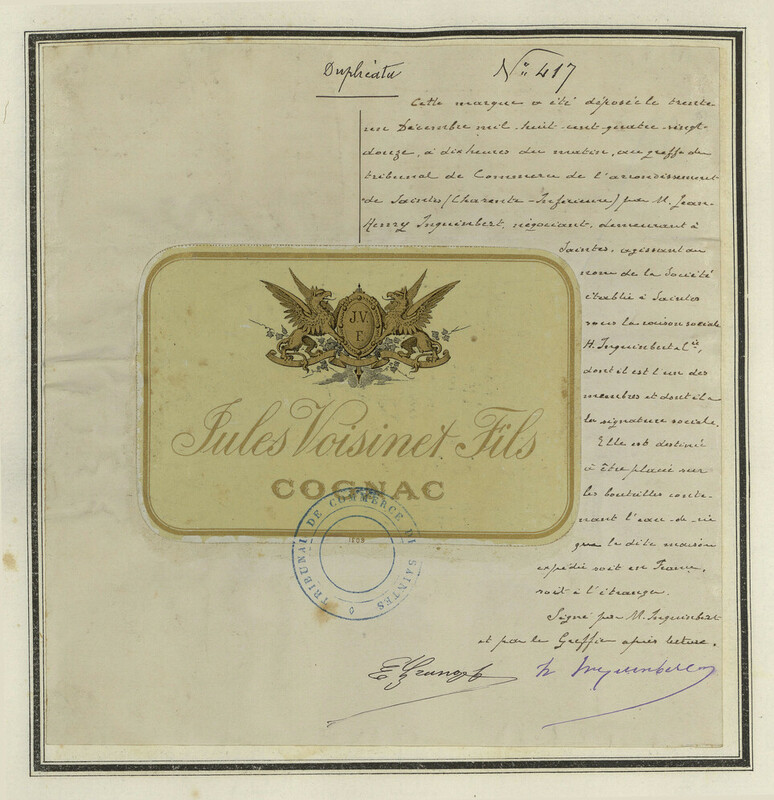 Duplicata
N° 417
Cette marque a été déposée le trente
un Décembre mil huit cent quatre vingt
douze, à dix heures du matin, au greffe du
tribunal de Commerce de l'arrondissement
de Saintes (Charente-Inférieure) par M. Jean-
Henry Inquimbert, négociant, demeurant à
Saintes, agissant au
nom de la Société
établie à Saintes
sous la raison sociale
H. Inquimbert & Cie,
dont il est l'un des
membres et dont il a
la signature sociale.
Elle est destinée
à être placée sur
les bouteilles conte-
nant l'eau-de-vie
que la dite maison
expédie soit en France,
soit à l'étranger.
Signé par M. Inquimbert
et par le Greffier après lecture.
J.V.
F.
Jules Voisinet Fils
COGNAC
TRIBUNAL DE COMMERCE DE SAINTES
H Inquimbert